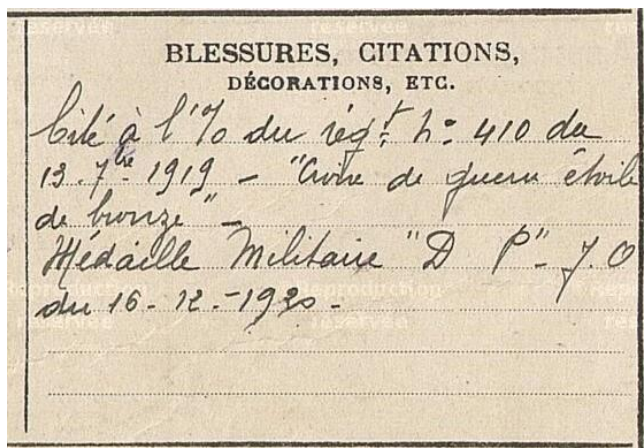 BLESSURES, CITATIONS,
DÉCORATIONS, ETC.
Cité à l'%o du régt n° 410 du
13. 7bre 1919 – "Croix de guerre étoile
de bronze" –
Médaille Militaire "D P" – J.O
du 16-12-1920 –
Reproduction
réservée